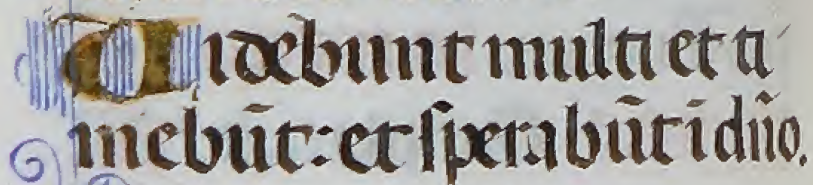 Videbunt multi et ti
mebūt: et sperabūt ī dño.